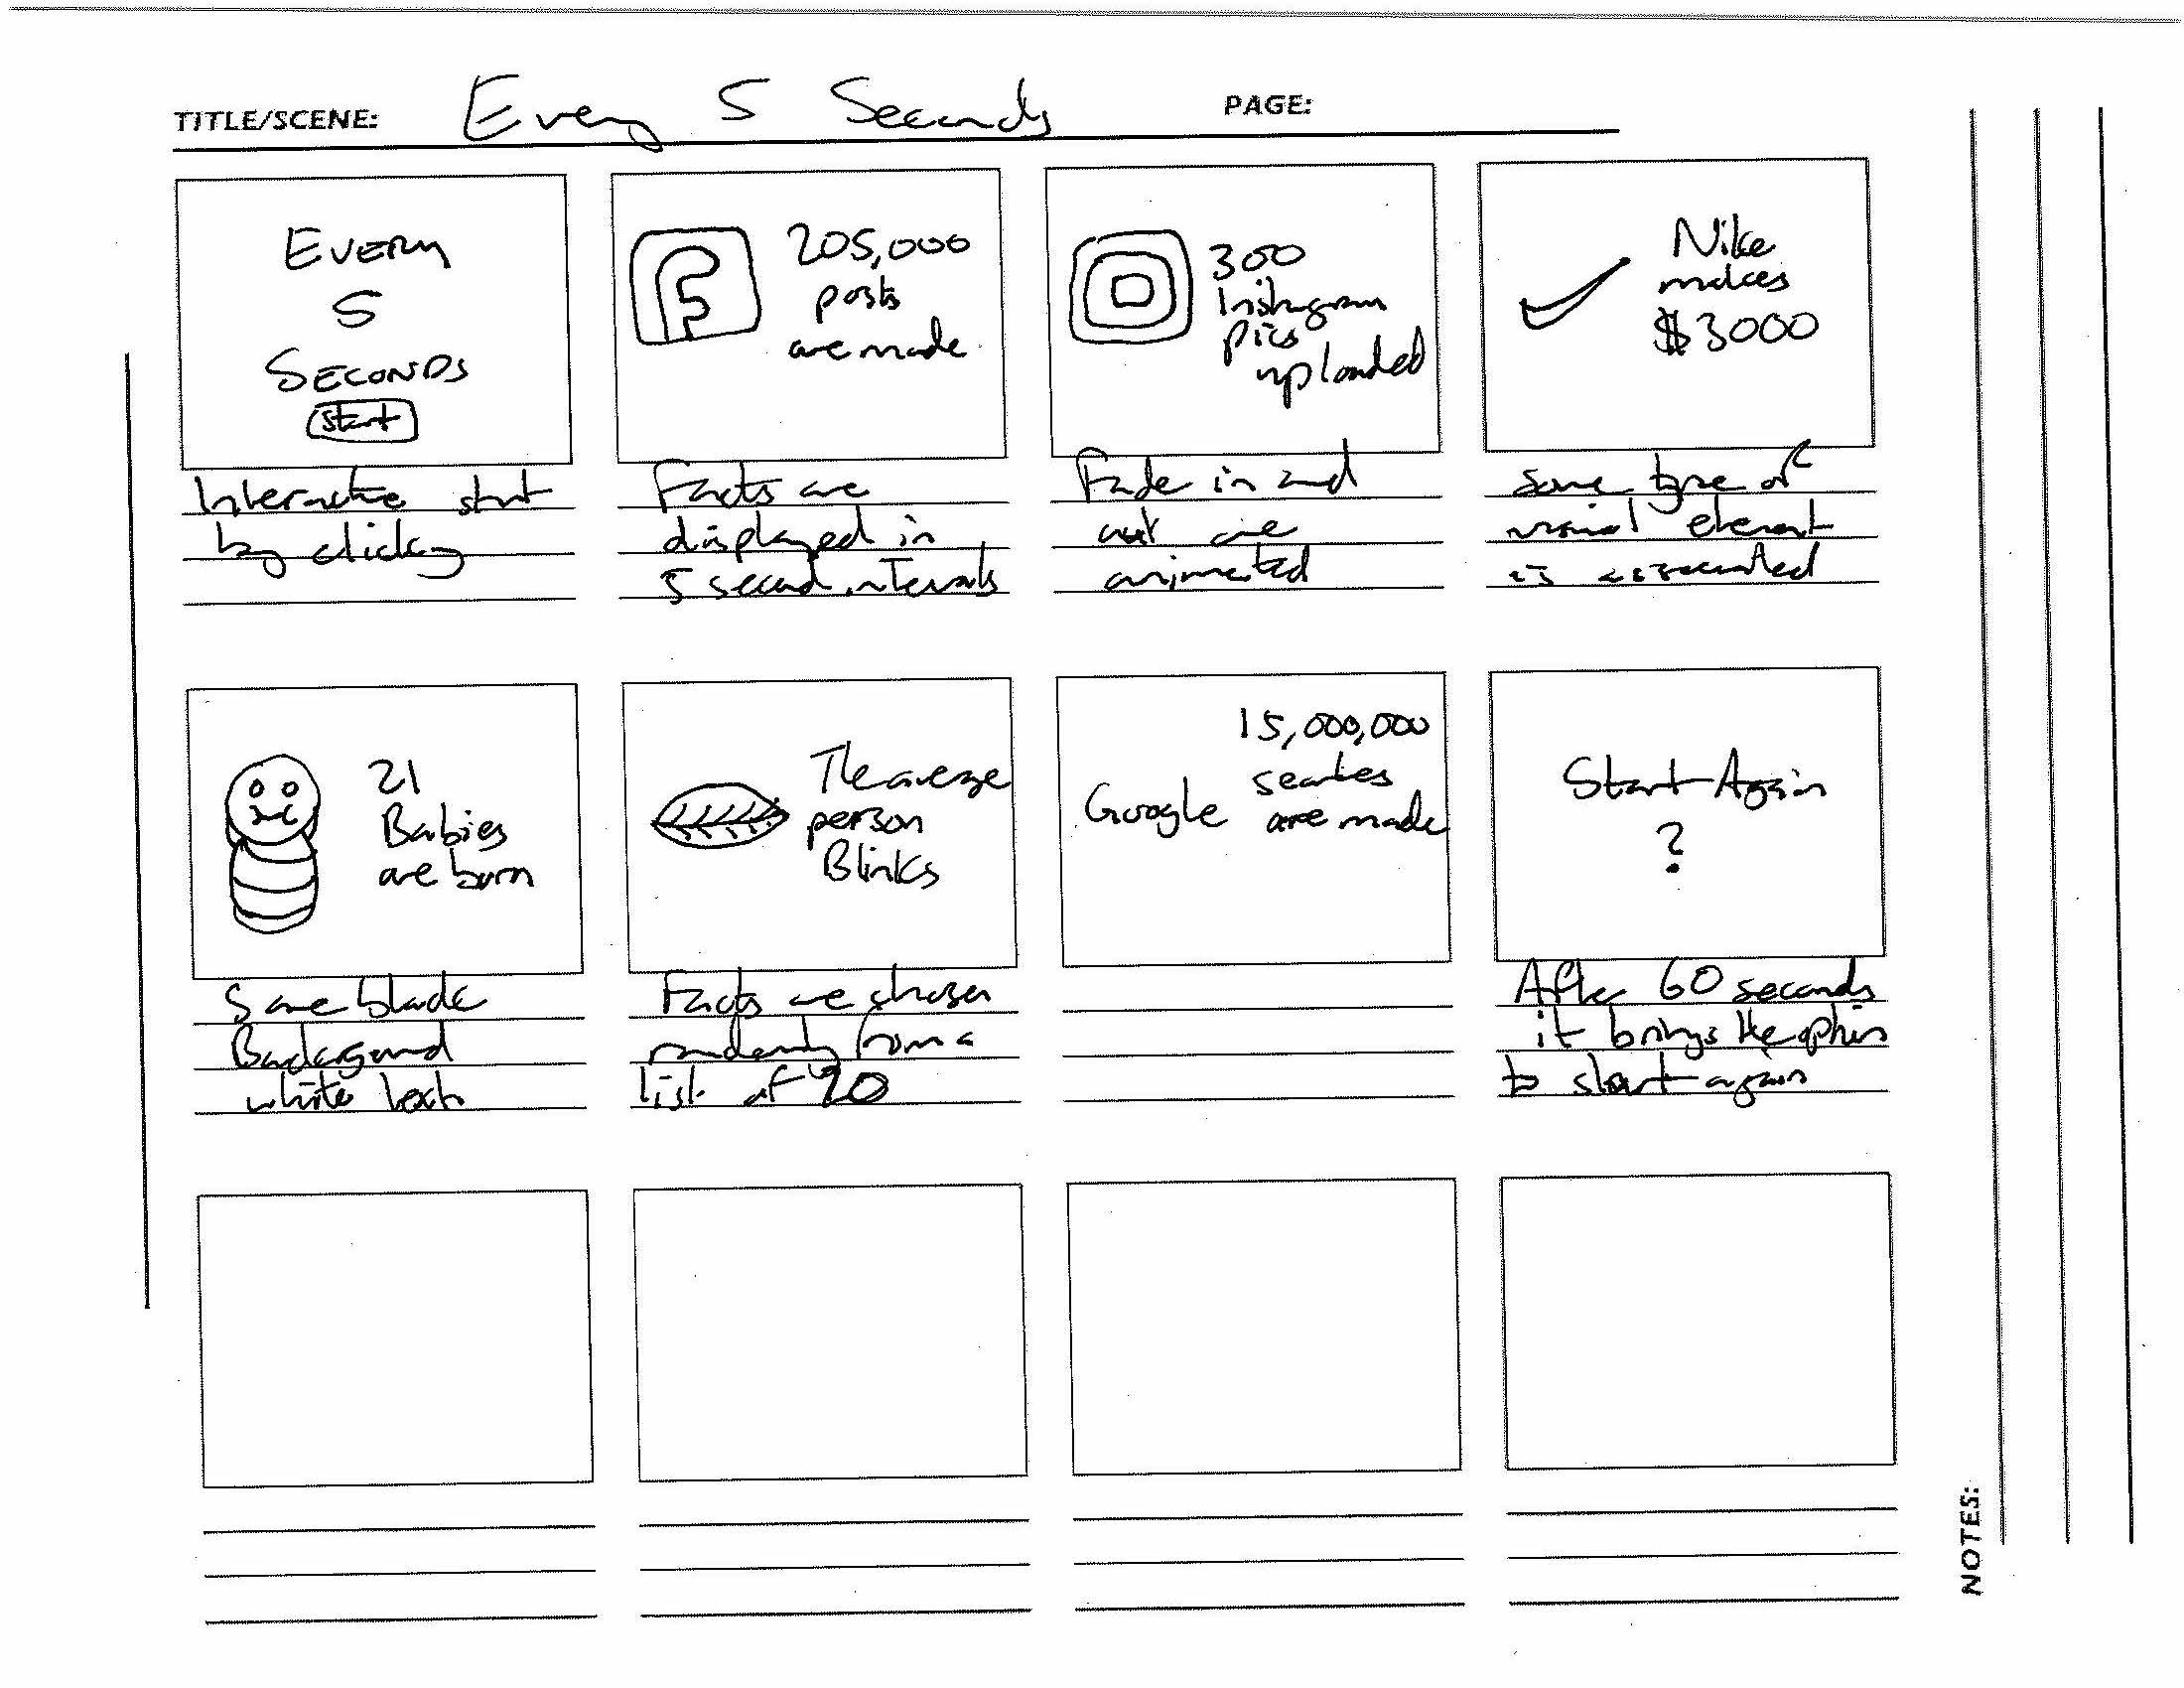 TITLE/SCENE: Every 5 Seconds
PAGE:
EVERY
5
SECONDS
start
Interactive start
by clicking
205,000
posts
are made
Facts are
displayed in
5 second intervals
300
Instagram
pics
uploaded
Fade in and
out are
animated
Nike
makes
$3000
Some type of
visual element
is associated
21
Babies
are born
Same black
Background
white text
The average
person
Blinks
Facts are chosen
randomly from a
list of 20
15,000,000
Google searches
are made
Start Again
?
After 60 seconds
it brings the option
to start again
NOTES: